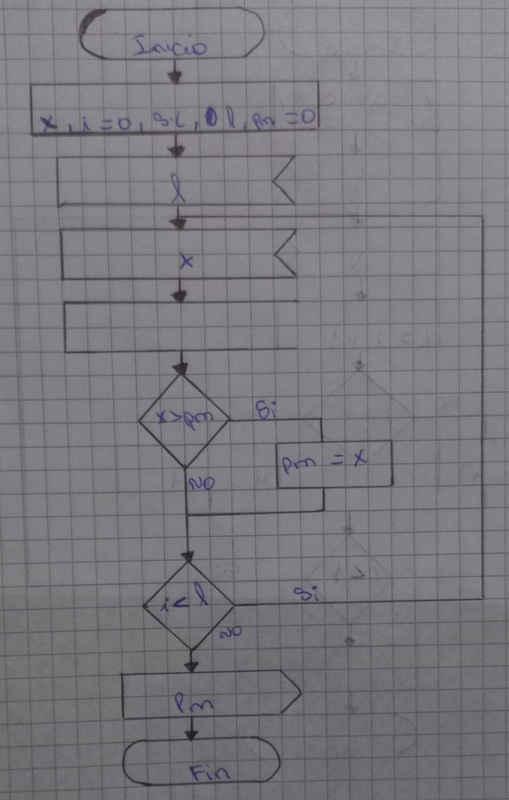 Inicio
x, i=0, l, pm=0
l
x
x>pm
Si
pm = x
NO
i< l
Si
NO
Pm
Fin